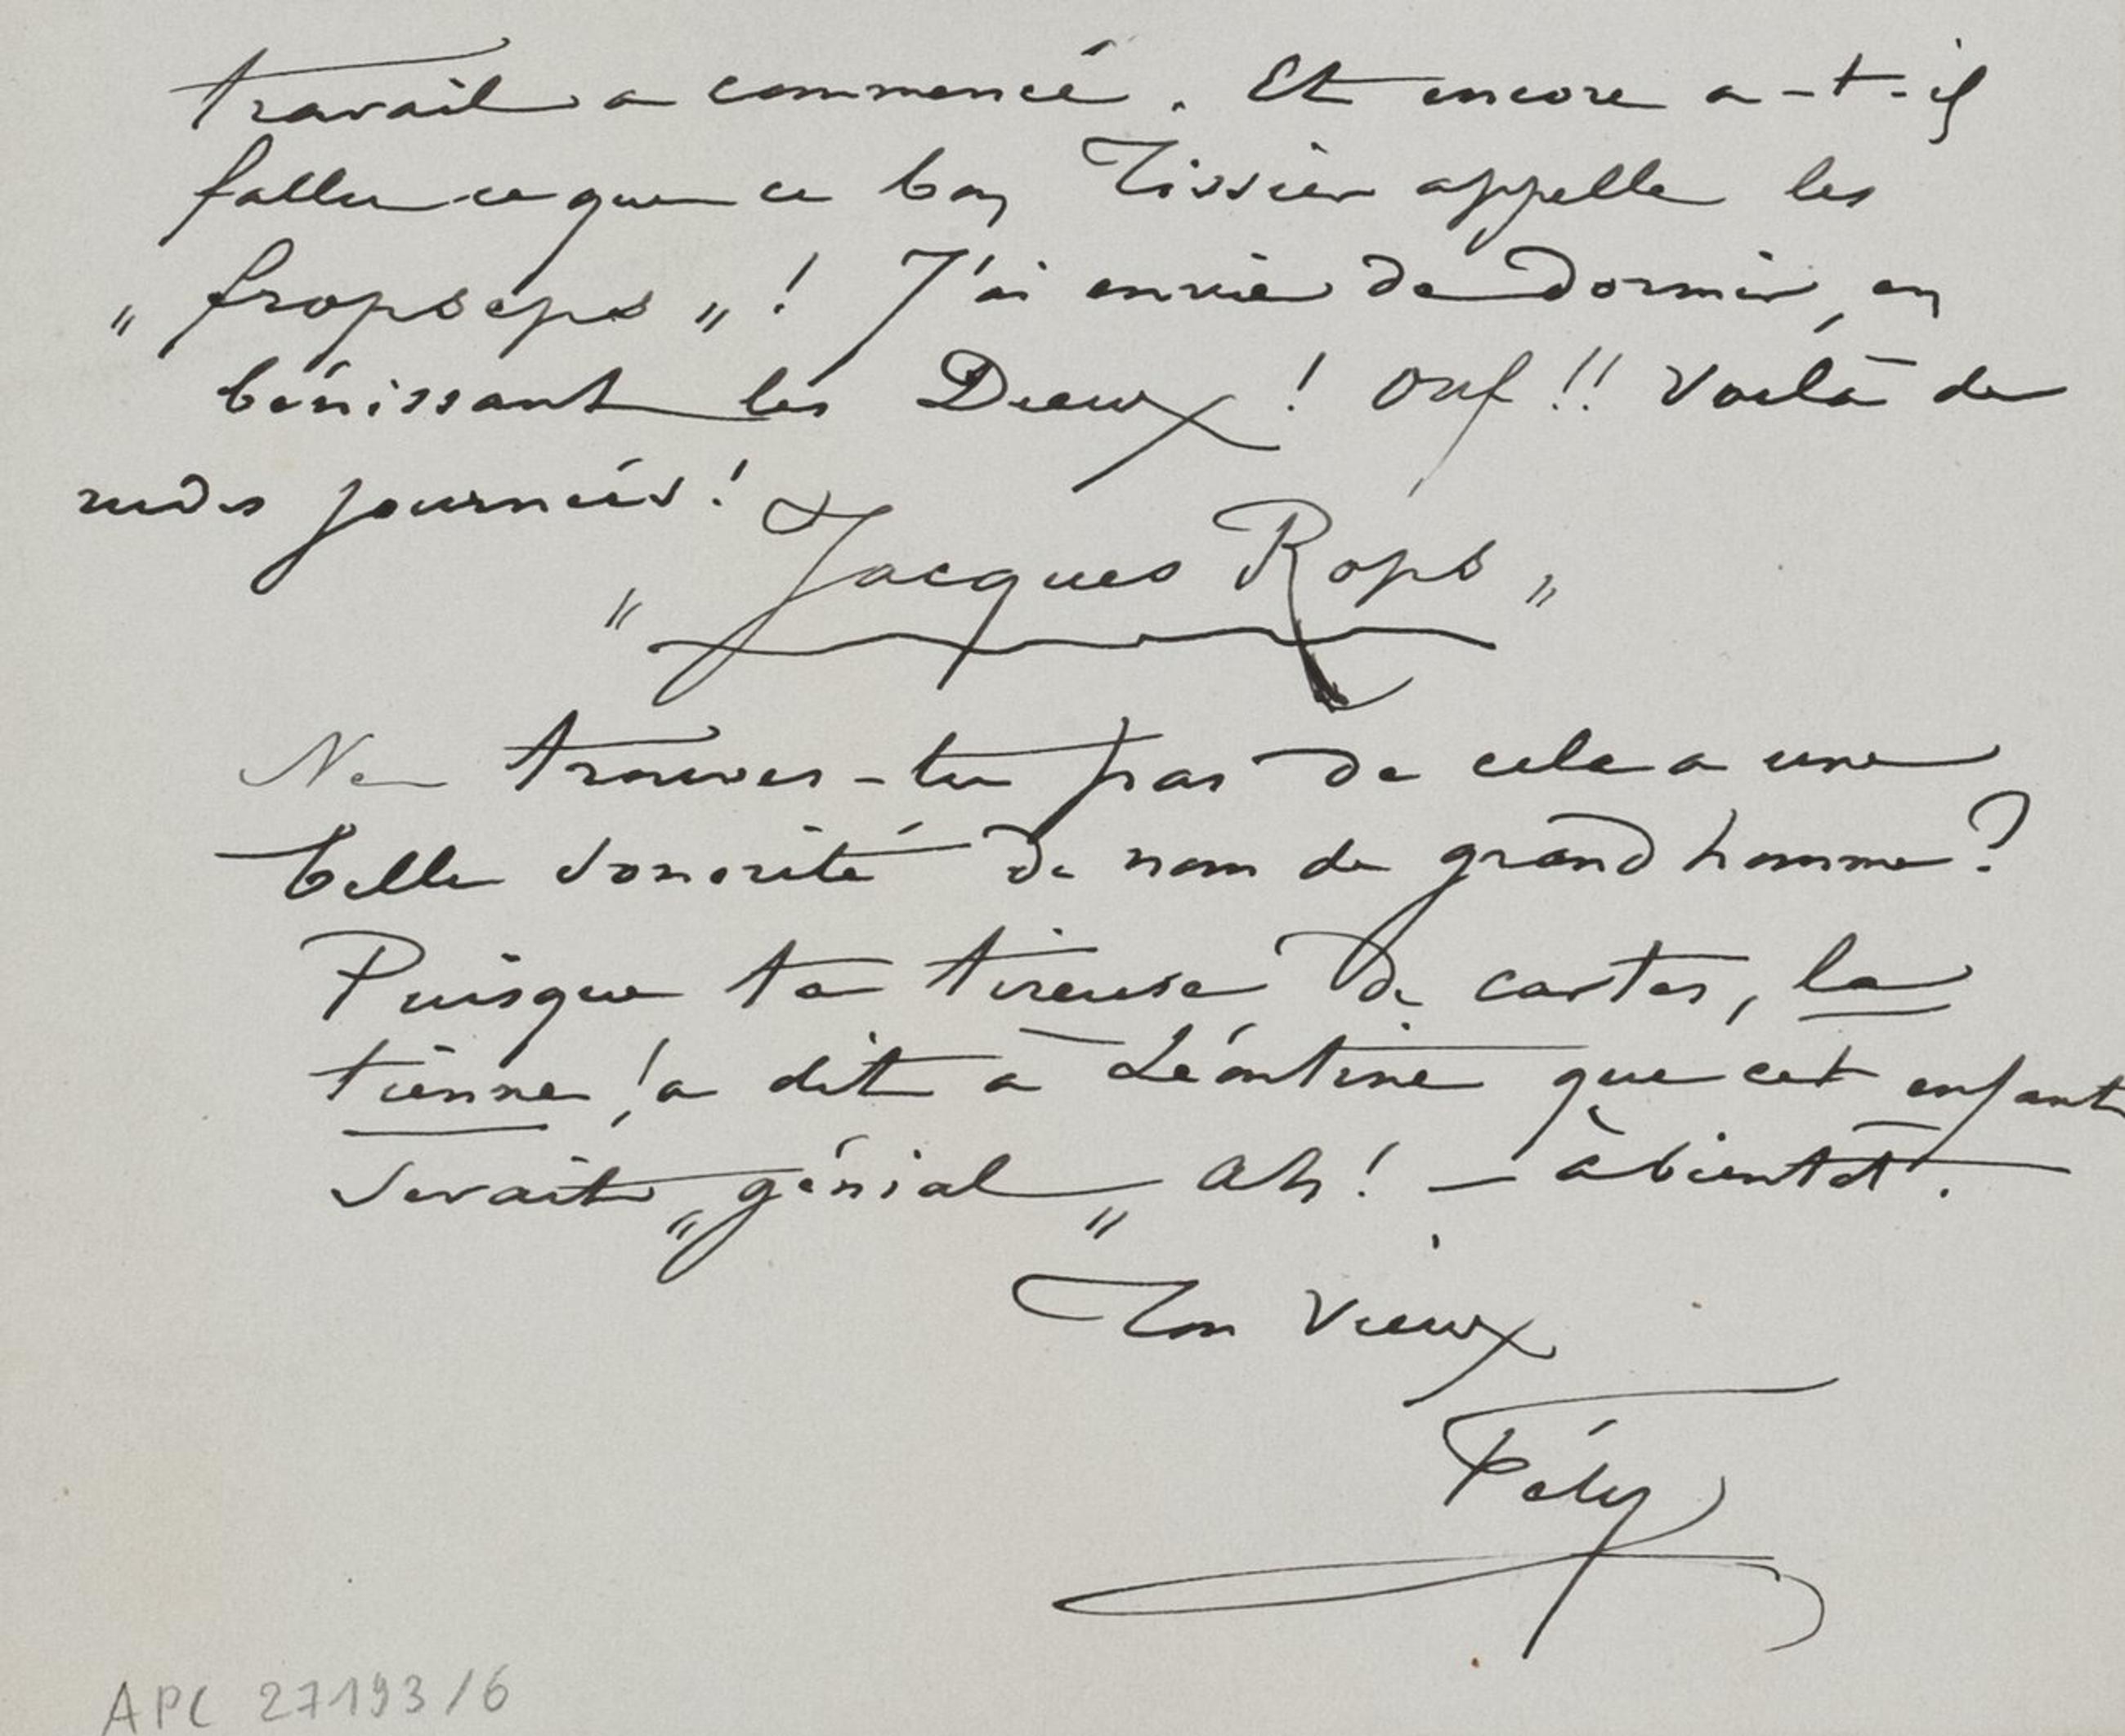 travail a commencé. Et encore a-t-il
fallu ce que ce bon Tissier appelle les
„ fropseps „ ! J'ai envie de dormir, en
bénissant les Dieux ! Ouf !! Voilà de
rudes journées !
„ Jacques Rops „
Ne trouves-tu pas de cela a une
belle sonorité de nom de grand homme ?
Puisque ta tireuse de cartes, la
tienne ! a dit à Léontine que cet enfant
serait „ génial „ Ah ! – à bientôt.
Ton Vieux
Fély
APC 27193/6